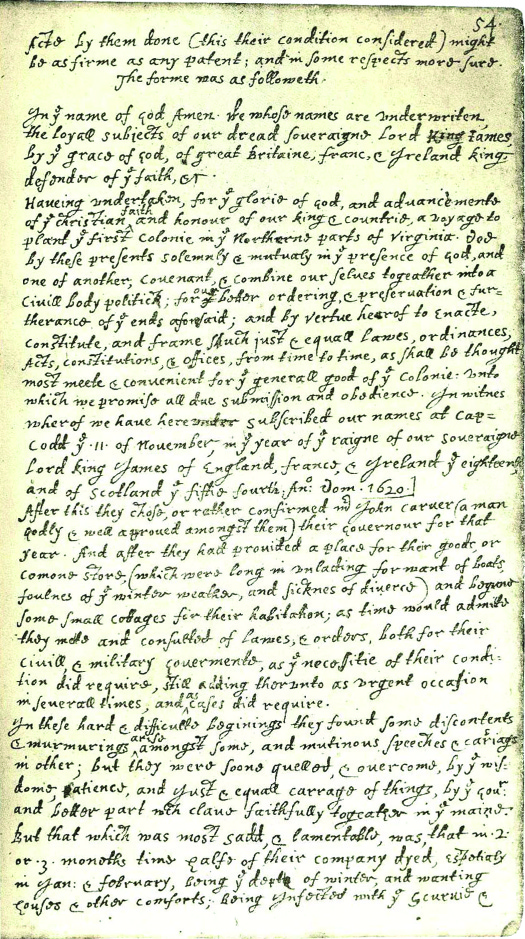 54.
Acte by them done (this their condition considered) might
be as firme as any patent; and in some respects more sure.
The forme was as followeth.
In yͤ name of god Amen. We whose names are underwriten,
the loyall subjects of our dread soveraigne Lord King James,
by yͤ grace of God, of great Britaine, franc, & Ireland king,
defender of yͤ faith, &c.
Haveing undertaken, for yͤ glorie of God, and advancemente
of yͤ christian faith and honour of our king & countrie, a voyage to
plant yͤ first Colonie in yͤ Northerne parts of Virginia. Doe
by these presents solemnly & mutualy in yͤ presence of God, and
one of another, covenant, & combine our selves togeather into a
Civill body politick; for our better ordering, & preservation & fur-
therance of yͤ ends aforesaid; and by vertue hearof to Enacte,
constitute, and frame such just & equall lawes, ordinances,
Acts, constitutions, & offices, from time to time, as shall be thought
most meete & convenient for yͤ generall good of yͤ Colonie: unto
which we promise all due submission and obedience. In witnes
wherof we have hereunder subscribed our names at Cap-
Codd yͤ .11. of November, in yͤ year of yͤ raigne of our soveraigne
Lord king James of England, france, & Ireland yͤ eighteenth
and of Scotland yͤ fiftie fourth. Anᵒ: Dom. 1620.
After this they chose, or rather confirmed mʳ John Carver (a man
godly & well approved amongst them) their governour for that
year. And after they had provided a place for their goods, or
comone store, (which were long in unlading for want of boats,
foulnes of yͤ winter weather, and sicknes of diverce) and begune
some small cottages for their habitation; as time would admitte
they mette and consulted of lawes, & orders, both for their
civill, & military govermente, as yͤ necessitie of their condi-
tion did require, still adding therunto as urgent occasion
in severall times, and as cases did require.
In these hard & difficulte beginings they found some discontents
& murmurings arise amongst some, and mutinous speeches & cariags
in other; but they were soone quelled, & overcome, by yͤ wis-
dome, patience, and just & equall carrage of things, by yͤ Govʳ.
and better part wᶜʰ clave faithfully togeather in yͤ maine.
But that which was most sadd, & lamentable, was, that in .2.
or .3. moneths time halfe of their company dyed, espetialy
in Jan: & february, being yͤ depth of winter, and wanting
houses & other comforts; being Infected with yͤ Scurvie &